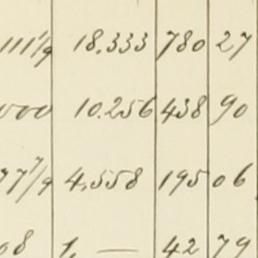 111 1/9 18.333 780 27
000 10.256 438 90
77 7/9 4.558 195 06
08 1. — 42 79